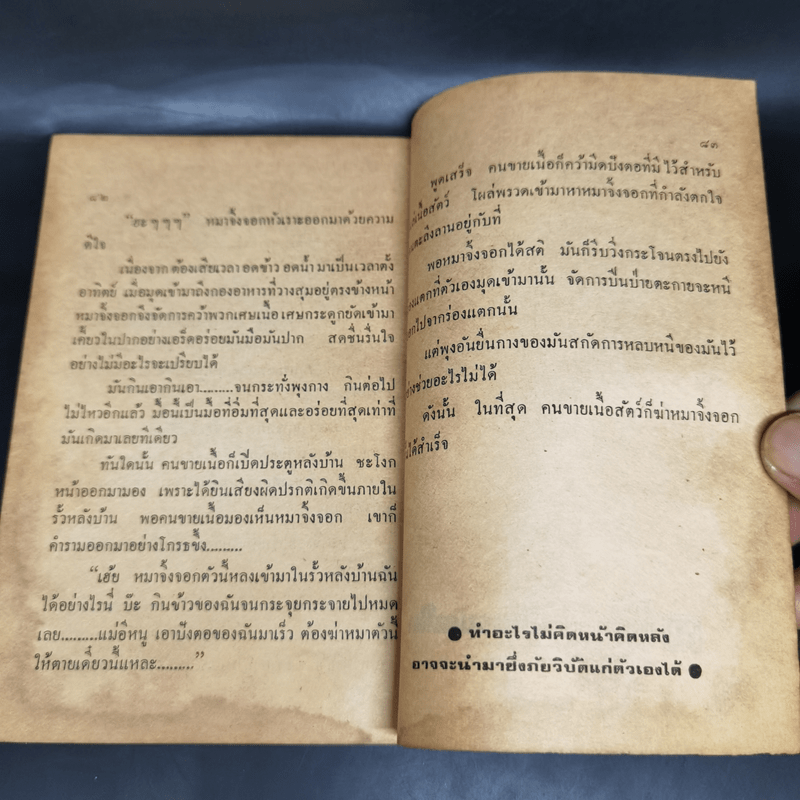 ๘๒
"ฮะ ๆ ๆ ๆ" หมาจิ้งจอกหัวเราะออกมาด้วยความ
ดีใจ
เนื่องจากต้องเสียเวลา อดข้าว อดน้ำ มาเป็นเวลาตั้ง
อาทิตย์ เมื่อมุดเข้ามาถึงกองอาหารที่วางสุมอยู่ตรงข้างหน้า
หมาจิ้งจอกจึงจัดการคว้าพวกเศษเนื้อ เศษกระดูกยัดเข้ามา
เคี้ยวในปากอย่างเอร็ดอร่อยมันมือมันปาก สดชื่นรื่นใจ
อย่างไม่มีอะไรจะเปรียบได้
มันกินเอากินเอา.........จนกระทั่งพุงกาง กินต่อไป
ไม่ไหวอีกแล้ว มื้อนี้เป็นมื้อที่อิ่มที่สุดและอร่อยที่สุดเท่าที่
มันเกิดมาเลยทีเดียว
ทันใดนั้น คนขายเนื้อก็เปิดประตูหลังบ้าน ชะโงก
หน้าออกมามอง เพราะได้ยินเสียงผิดปรกติเกิดขึ้นภายใน
รั้วหลังบ้าน พอคนขายเนื้อมองเห็นหมาจิ้งจอก เขาก็
คำรามออกมาอย่างโกรธขึ้ง.........
"เฮ้ย หมาจิ้งจอกตัวนี้หลงเข้ามาในรั้วหลังบ้านฉัน
ได้อย่างไรนี่ บ๊ะ กินข้าวของฉันจนกระจุยกระจายไปหมด
เลย.........แม่อีหนู เอาปังตอของฉันมาเร็ว ต้องฆ่าหมาตัวนี้
ให้ตายเดี๋ยวนี้แหละ........."
๘๓
พูดเสร็จ คนขายเนื้อก็คว้ามีดบังตอที่มีไว้สำหรับ
เนื้อสัตว์ โผล่พรวดเข้ามาหาหมาจิ้งจอกที่กำลังตกใจ
ตะลึงลานอยู่กับที่
พอหมาจิ้งจอกได้สติ มันก็รีบวิ่งกระโจนตรงไปยัง
แตกที่ตัวเองมุดเข้ามานั้น จัดการปีนป่ายตะกายจะหนี
ไปจากร่องแตกนั้น
แต่พุงอันยื่นกางของมันสกัดการหลบหนีของมันไว้
ช่วยอะไรไม่ได้
ดังนั้น ในที่สุด คนขายเนื้อสัตว์ก็ฆ่าหมาจิ้งจอก
ได้สำเร็จ
● ทำอะไรไม่คิดหน้าคิดหลัง
อาจจะนำมาซึ่งภัยวิบัติแก่ตัวเองได้ ●